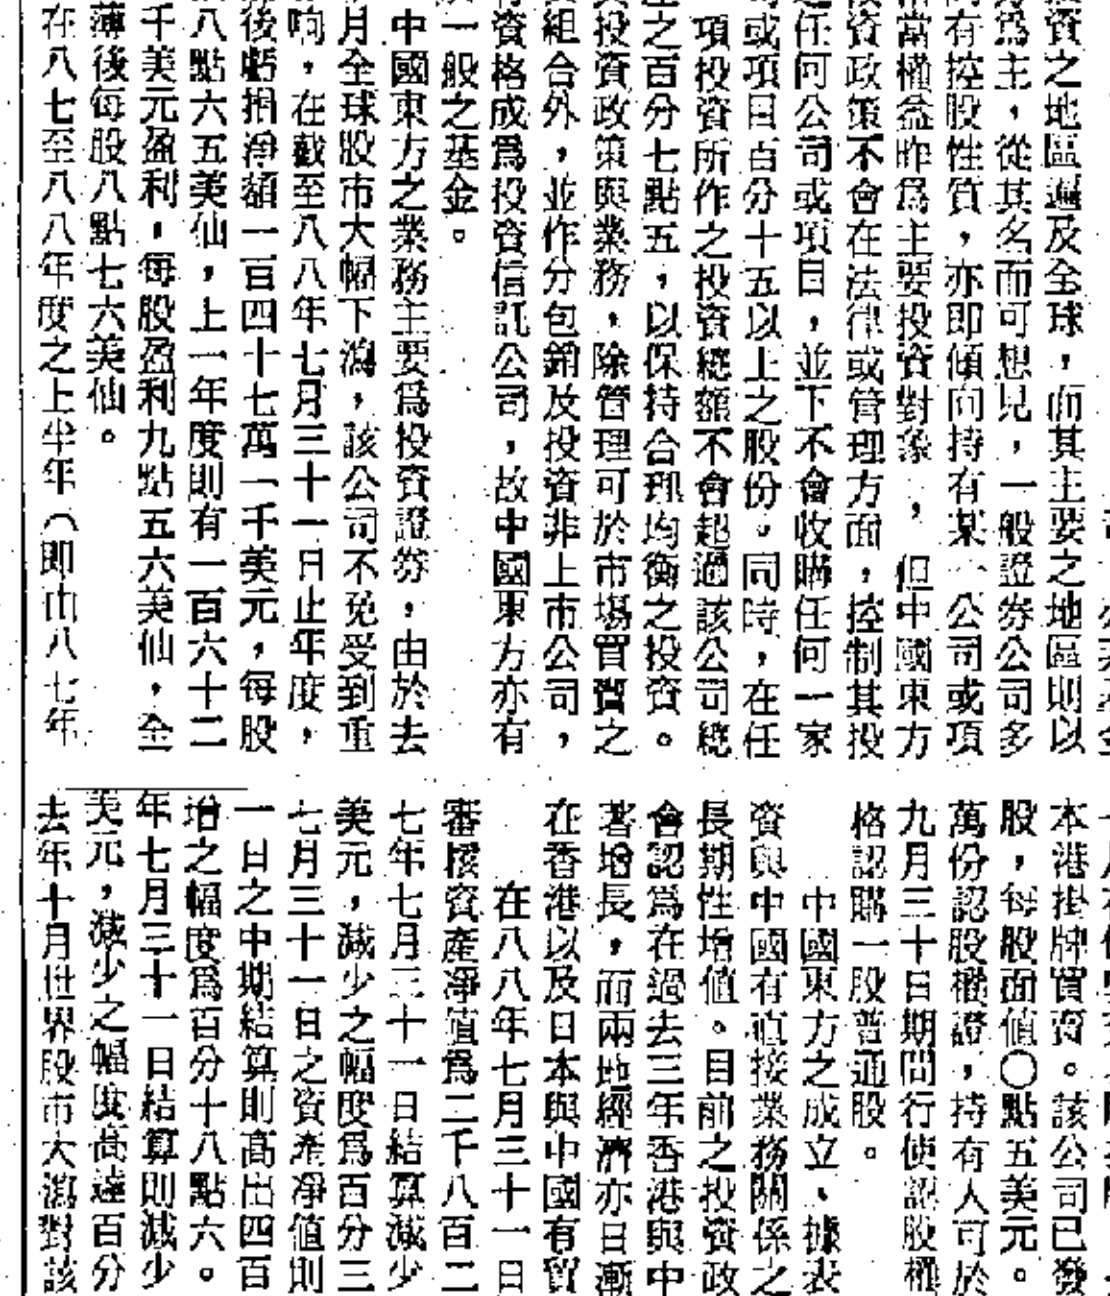 資之地區遍及全球，而其主要之地區則以
為主，從其名而可想見，一般證券公司多
有控股性質，亦即傾向持有某一公司或項
當權益昨爲主要投資對象，但中國東方
資政策不會在法律或管理方面，控制其投
任何公司或項目，並下不會收購任何一家
或項目百分十五以上之股份。同時，在任
項投資所作之投資總額不會超過該公司總
之百分七點五，以保持合理均衡之投資。
投資政策與業務，除管理可於市場買賣之
組合外，並作分包銷及投資非上市公司，
資格成爲投資信託公司，故中國東方亦有
一般之基金。
中國東方之業務主要爲投資證券，由於去
月全球股市大幅下瀉，該公司不免受到重
响，在截至八八年七月三十一日止年度，
後虧損淨額一百四十七萬一千美元，每股
八點六五美仙，上一年度則有一百六十二
千美元盈利，每股盈利九點五六美仙，全
薄後每股八點七六美仙。
在八七至八八年度之上半年（即由八七年
本港掛牌買賣。該公司已發
股，每股面值〇點五美元。
萬份認股權證，持有人可於
九月三十日期間行使認股權
格認購一股普通股。
中國東方之成立，據表
資與中國有直接業務關係之
長期性增值。目前之投資政
會認爲在過去三年香港與中
著增長，而兩地經濟亦日漸
在香港以及日本與中國有貿
在八八年七月三十一日
審核資產淨值爲二千八百二
七年七月三十一日結算減少
美元，減少之幅度爲百分三
七月三十一日之資產淨值則
一日之中期結算則高出四百
增之幅度爲百分十八點六。
年七月三十一日結算則減少
美元，減少之幅度高達百分
去年十月世界股市大瀉對該